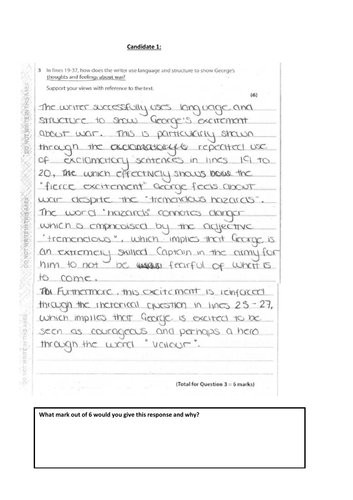 Candidate 1:
3 In lines 19-37, how does the writer use language and structure to show George's
thoughts and feelings about war?
Support your views with reference to the text.
(6)
The writer successfully uses language and
structure to show George's excitement
about war. This is particularly shown
through the repeated use
of exclamatory sentences in lines 19 to
20, which effectively shows the
"fierce excitement" George feels about
war despite the "tremendous hazards".
The word "hazards" connotes danger
which is emphasised by the adjective
"tremendous", which implies that George is
an extremely skilled Captain in the army for
him to not be fearful of what is
to come.
Furthermore, this excitement is reinforced
through the rhetorical question in lines 25-27,
which implies that George is excited to be
seen as courageous and perhaps a hero
through the word "valour".
(Total for Question 3 = 6 marks)
What mark out of 6 would you give this response and why?
DO NOT WRITE IN THIS AREA
DO NOT WRITE IN THIS AREA
DO NOT WRITE IN THIS AREA